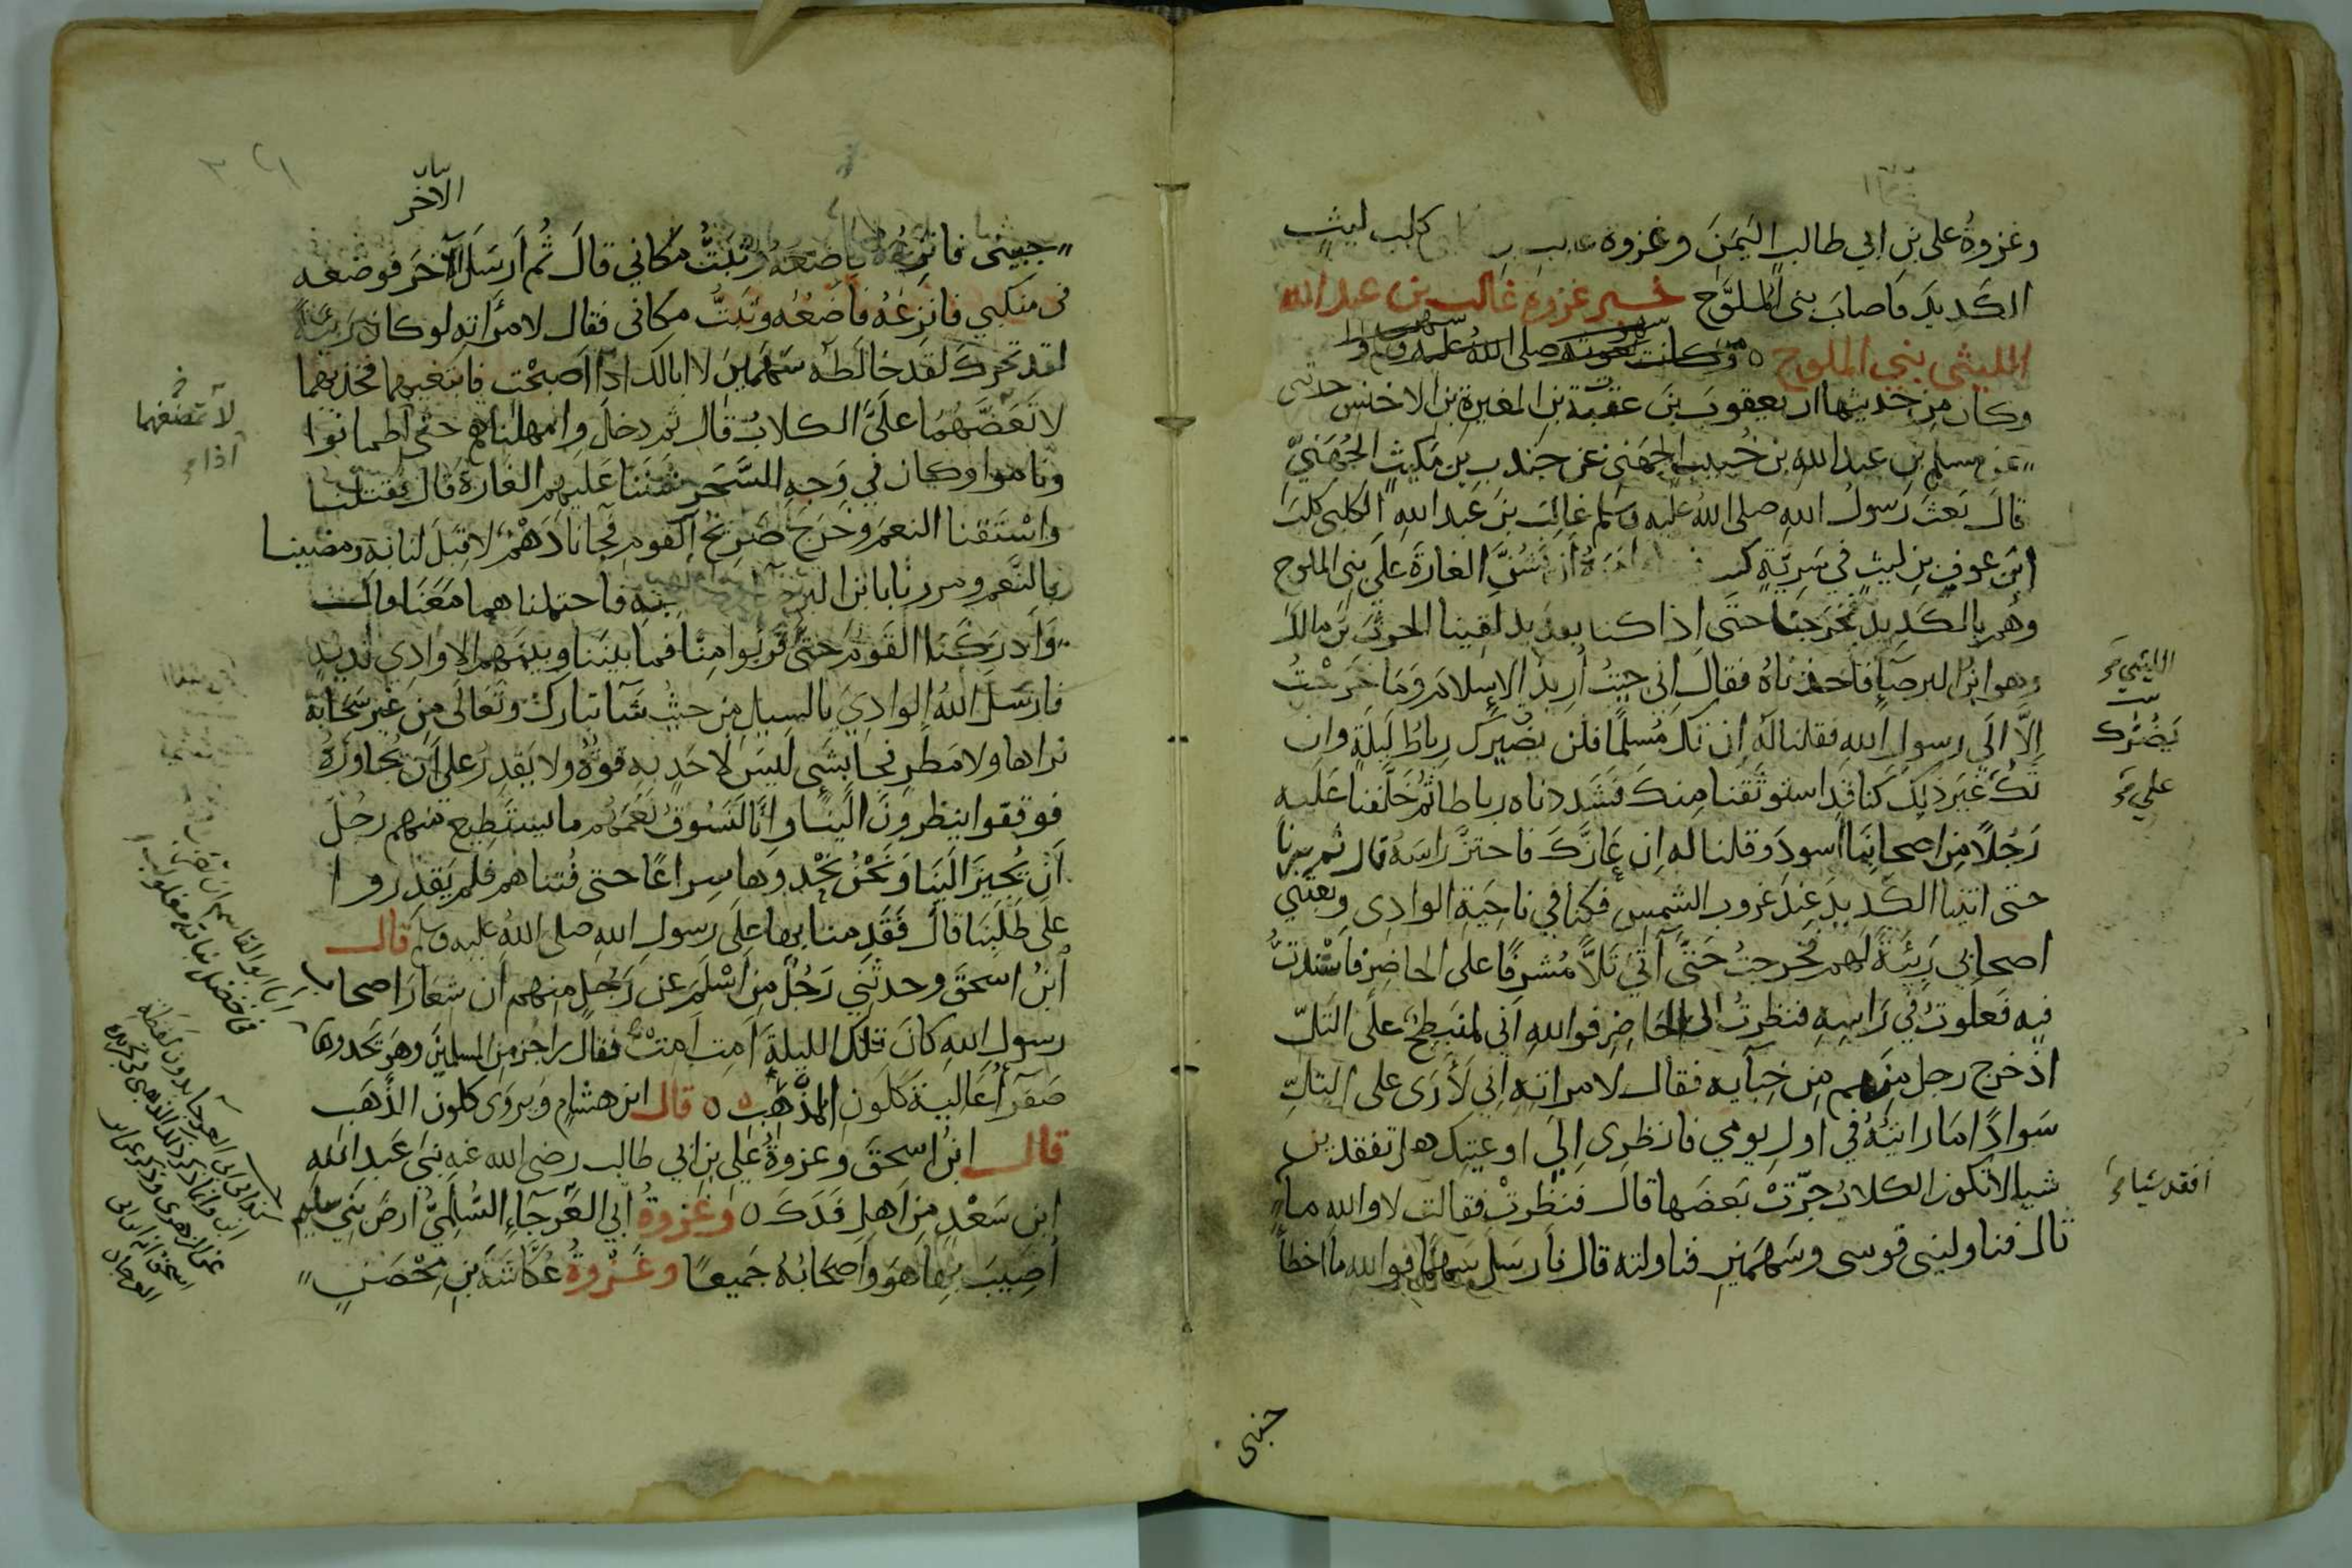 وغزوةُ على بن ابي طالبٍ اليَمَنَ وغزوة كلب ليثٍ
الكَديدَ فاصابَ بنى المُلوَّح خبر غزوة غالب بن عبد الله
الليثى بنى الملوح وكانت صلى الله عليه
وكان مِن حَديثها ان يعقوبَ بنَ عقبة بنِ المغيرةِ بنِ الاخنس حدثنى
عن مسلم بن عبد الله بن خُبيب الجهَنى عن جندب بن مَكيثٍ الجُهَنيّ
قالَ بَعَثَ رَسولُ اللهِ صلى اللهُ عليه وسَلم غالِبَ بنَ عَبد اللهِ الكلبى كلبَ
ابنَ عوفِ بنِ ليثٍ في سَرِيَّةٍ اَن يَشُنَّ الغارَةَ عَلَى بنى الملوح
وهُم بالكَدِيدِ فخَرَجنا حتَى اِذا كنا بقديد لَقِينا الحرثَ بنَ مالك
وهو ابنُ البرصآءِ فاَخذناهُ فقالَ اِني جيتُ اُريدُ الاِسلامَ وَمَا خَرَجْتُ
اِلاَّ الَى رسولِ اللهِ فقلنا لَهُ اِن تكُ مُسلمًا فلن يضيرَك رِباطُ لَيلَةٍ وان
تَكُ غَيرَ ذلِكَ كنا قَدِ استوثَقنا مِنكَ فشَدَدناه رباطا ثُم خَلَّفنا عَلَيه
رَجُلاً مِن اصحابِنَا اَسودَ وقلنا له اِن عَازَّكَ فاحتزَّ راسَهُ قال ثم سرنا
حتى اتينا الكَديدَ عِندَ غروبِ الشمسِ فكنا في ناحِيَةِ الوادِى وبعثني
اصحابي رَبِيئَةً لَهم فخرجتُ حَتَّى آتىَ تَلاًّ مُشرِفًا على الحاضِرِ فاَسْنَدتُّ
فيه فَعلوتُ في رَاسِهِ فنظرتُ الى الحَاضِرِ فوالله اَني لمنبَطِحٌ علَى التَلِّ
اذ خرج رجل مِنهم مِن خِبآيه فقال لامراتِه اِني لَاَرَى على التَلِّ
سَوادًا مَا رايتُهُ في اولِ يومي فانظرِى اِلَى اوعيتِك هل تفقدين
شيا لا تكون الكلابُ جَرَّتْ بَعضَها قالَ فنَظَرتْ فقالَت لا والله ما
قال فناوليني قوسى وسَهمَينِ فناولته قال فاَرسَلَ سَهمًا فوالله ما اخطأ
جنبى
الليثي
يَضُرّك
علي
افقد شيا
الآخر
جبينى فانزِعُهُ فاَضعَهُ وثبَتُّ مَكاني قالَ ثُم اَرسَلَ الآخَرَ فوضعه
في منكبي فانزِعُهُ فاَضَعُهُ وثَبَتُّ مكانى فقال لامرَاتِهِ لو كانَ رَبيئةً
لقد تحرك لقد خالَطَه سَهمَاىَ لا ابا لَك اذا اَصبحْت فابتغيهما فخذيهما
لا تَمضَغُهُمَا عَلَيَّ الكلابُ قال ثم دخل واَمهلناهم حَتى اطمانوا
ونَاموا وكان في وَجهِ السَّحَرِ شَننَا عَلَيهِم الغارةَ قالَ فقتلنا
واسْتَقنا النعَمَ وخَرَجَ صَرِيخُ القومِ فجآنا دَهْمٌ لا قِبَلَ لنا به ومضينا
بالنَّعمِ ومررنا بابن البرصآء وصاحبه فاحتملناهما مَعَنَا قالَ
وَاَدرَكَنا القَومُ حَتَّى قَربُوا مِنّا فما بينَنا وبينَهم الا وادِي قديدٍ
فارسَلَ اللهُ الوادِيَ بالسيلِ من حيثُ شَآ تباركَ وتَعَالى مِن غيرِ سَحابَةٍ
نراها ولا مَطَرٍ فجا بشَىءٍ لَيسَ لاَحَدٍ به قوةٌ ولا يَقدِرُ علَى اَن يُجاوزَهُ
فوقفوا ينظرونَ الَينَا وانَّا لَنَسُوقُ نَعَمَهُم ما يستَطيع منهم رجُل
اَن يُجِيزَ الَينَا وَنَحْنُ نَحْدوهَا سِراعًا حتى فُتناهم فلم يَقدِروا
على طَلَبنَا قالَ فَقَدِمنا بها علَى رسولِ الله صلى اللهُ عليه وسلم قال
ابنُ اسحقَ وحدثَني رَجُلٌ مِن اَسْلَمَ عن رَجُلٍ مِنهم اَن شِعَارَ اصحابِ
رسولِ اللهِ كانَ تلكَ الليلةَ اَمِت اَمِتْ فقالَ راجز مِن المسلمينَ وهو يَحدوها
صُفرٍ اَعَاليهِ كَلَونِ المُذْهَبِ قال ابن هشامٍ ويُروَى كلونِ الذَّهَبِ
قال ابنُ اسحقَ وغزوةُ علي بن ابي طالب رضى الله عنه بَنِي عَبدِ اللهِ
ابنِ سَعْدٍ مِن اَهلِ فَدَكَ وغزوةُ ابي العَوْجَآءِ السُّلَمِيّ ارضَ بَنِي سليم
اُصِيبَ بها هوَ واَصحَابُهُ جَميعًا وغَزْوةُ عُكَّاشَةَ بنِ مِحْصَنٍ
لا تمضغهما